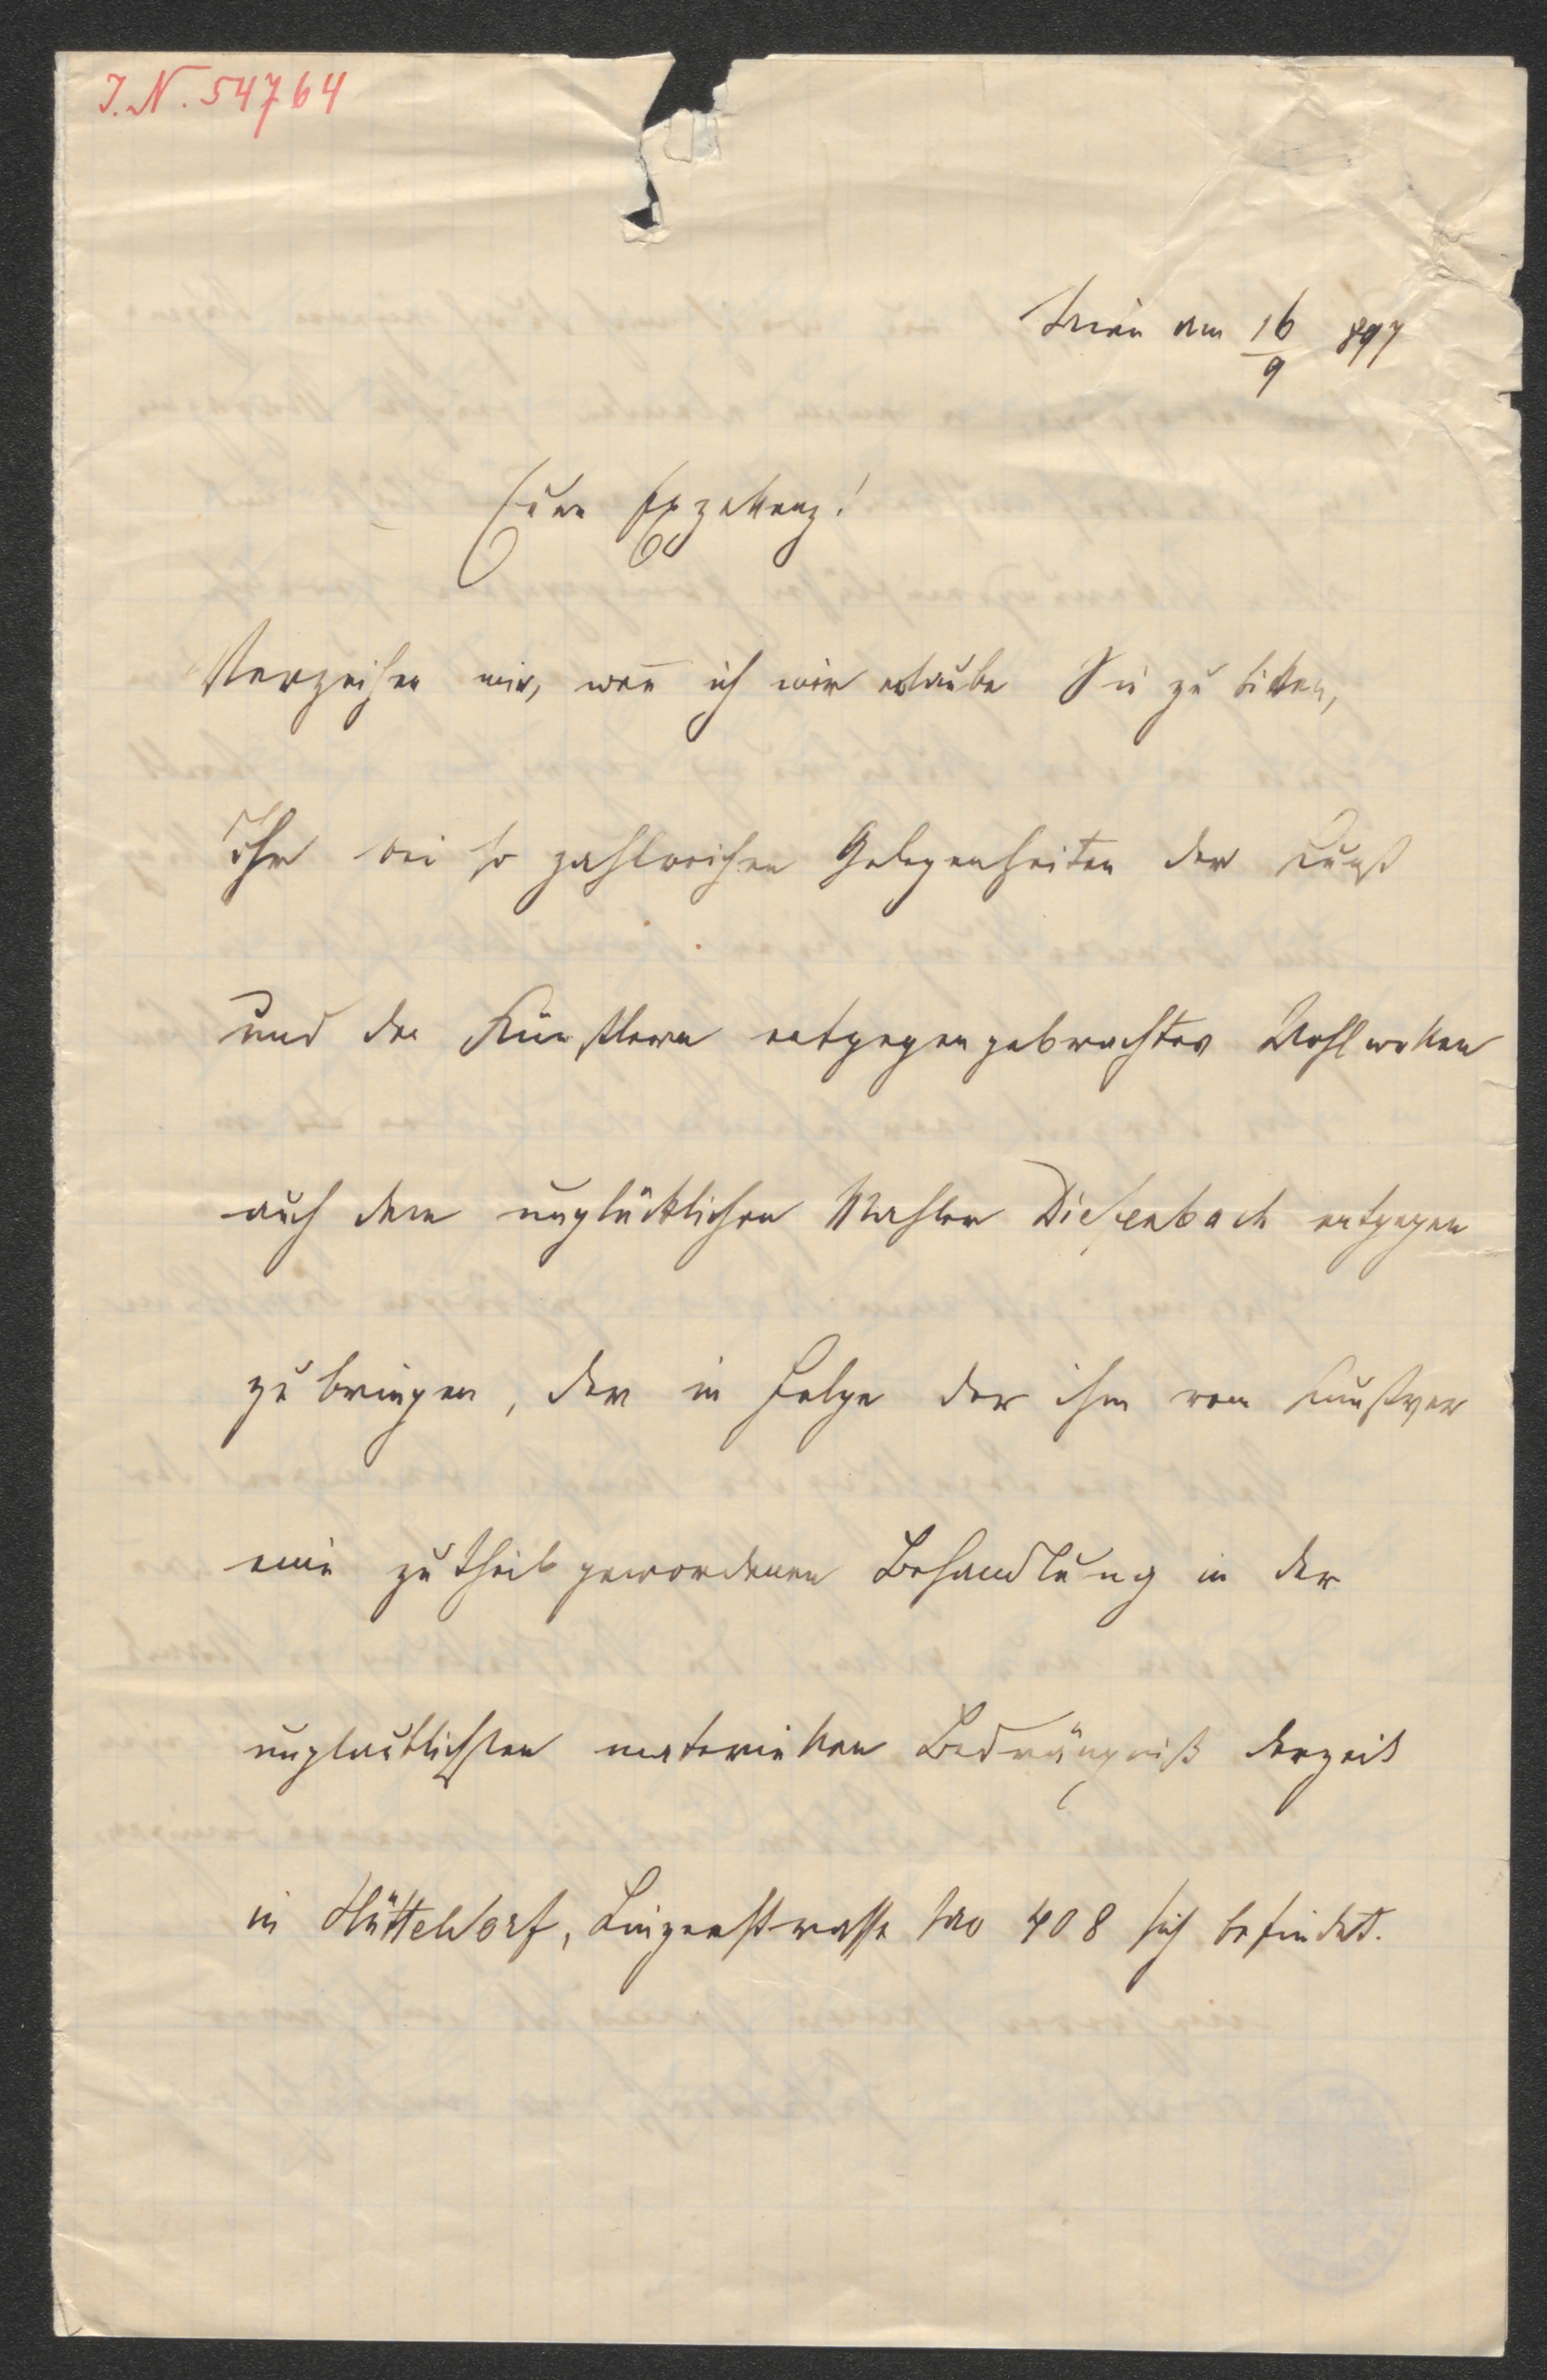 I.N. 54764
Wien am 16/9 897
Eure Exzellenz!
Verzeihen mir, wen̄ ich mir erlaube Sie zu bitten,
Ihr bei so zahlreichen Gelegenheiten der Kunst
und den Künstlern entgegengebrachtes Wohlwollen
auch dem unglücklichen Mahler Diefenbach entgegen
zu bringen, der in Folge der ihm vom Kunstver
ein zutheil gewordenen Behandlung in der
unglaublichsten materiellen Bedrängniß derzeit
in Hütteldorf, Linzerstrasse No 408 sich befindet.